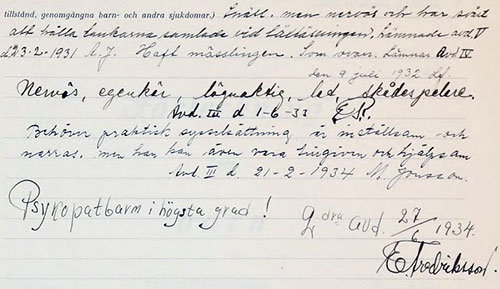 tillstånd, genomgångna barn- och andra sjukdomar.) Snäll, men nervös och har svårt
att hålla tankarna samlade vid Lämnade avd. V
d. 23-2-1931 A.J. Haft mässlingen. Som ovan. Lämnar Avd IV
den 9 juli 1932
Nervös, egenkär, lögnaktig, lat, skådespelare.
Avd. III d 1-6-33
Behöver praktisk sysselsättning är inställsam och
narras, men han kan även vara tingiven och hjälpsam
Avd. III d. 21-2-1934 M. Jonsson.
Psykopatbarn i högsta grad! 2dra avd. 27/6 1934.
E Fredriksson.